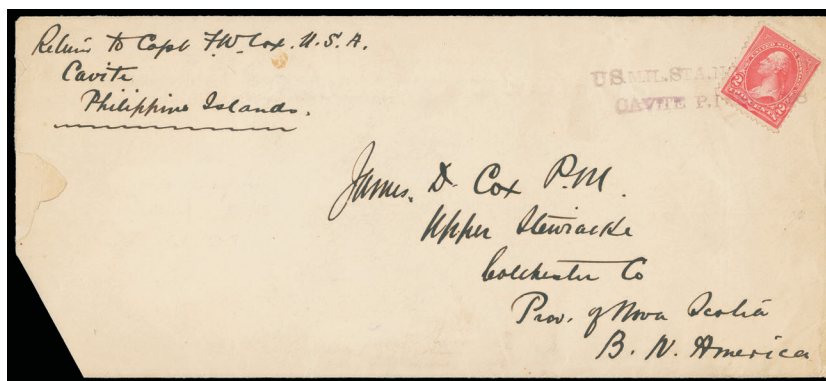 Return to Capt F.W. Cox. U.S.A.
Cavite
Philippine Islands.
U.S. MIL. STA. N
CAVITE P.I
UNITED STATES
2 2
TWO CENTS
James. D. Cox P.M.
Upper Stewiacke
Colchester Co
Prov. of Nova Scotia
B. N. America